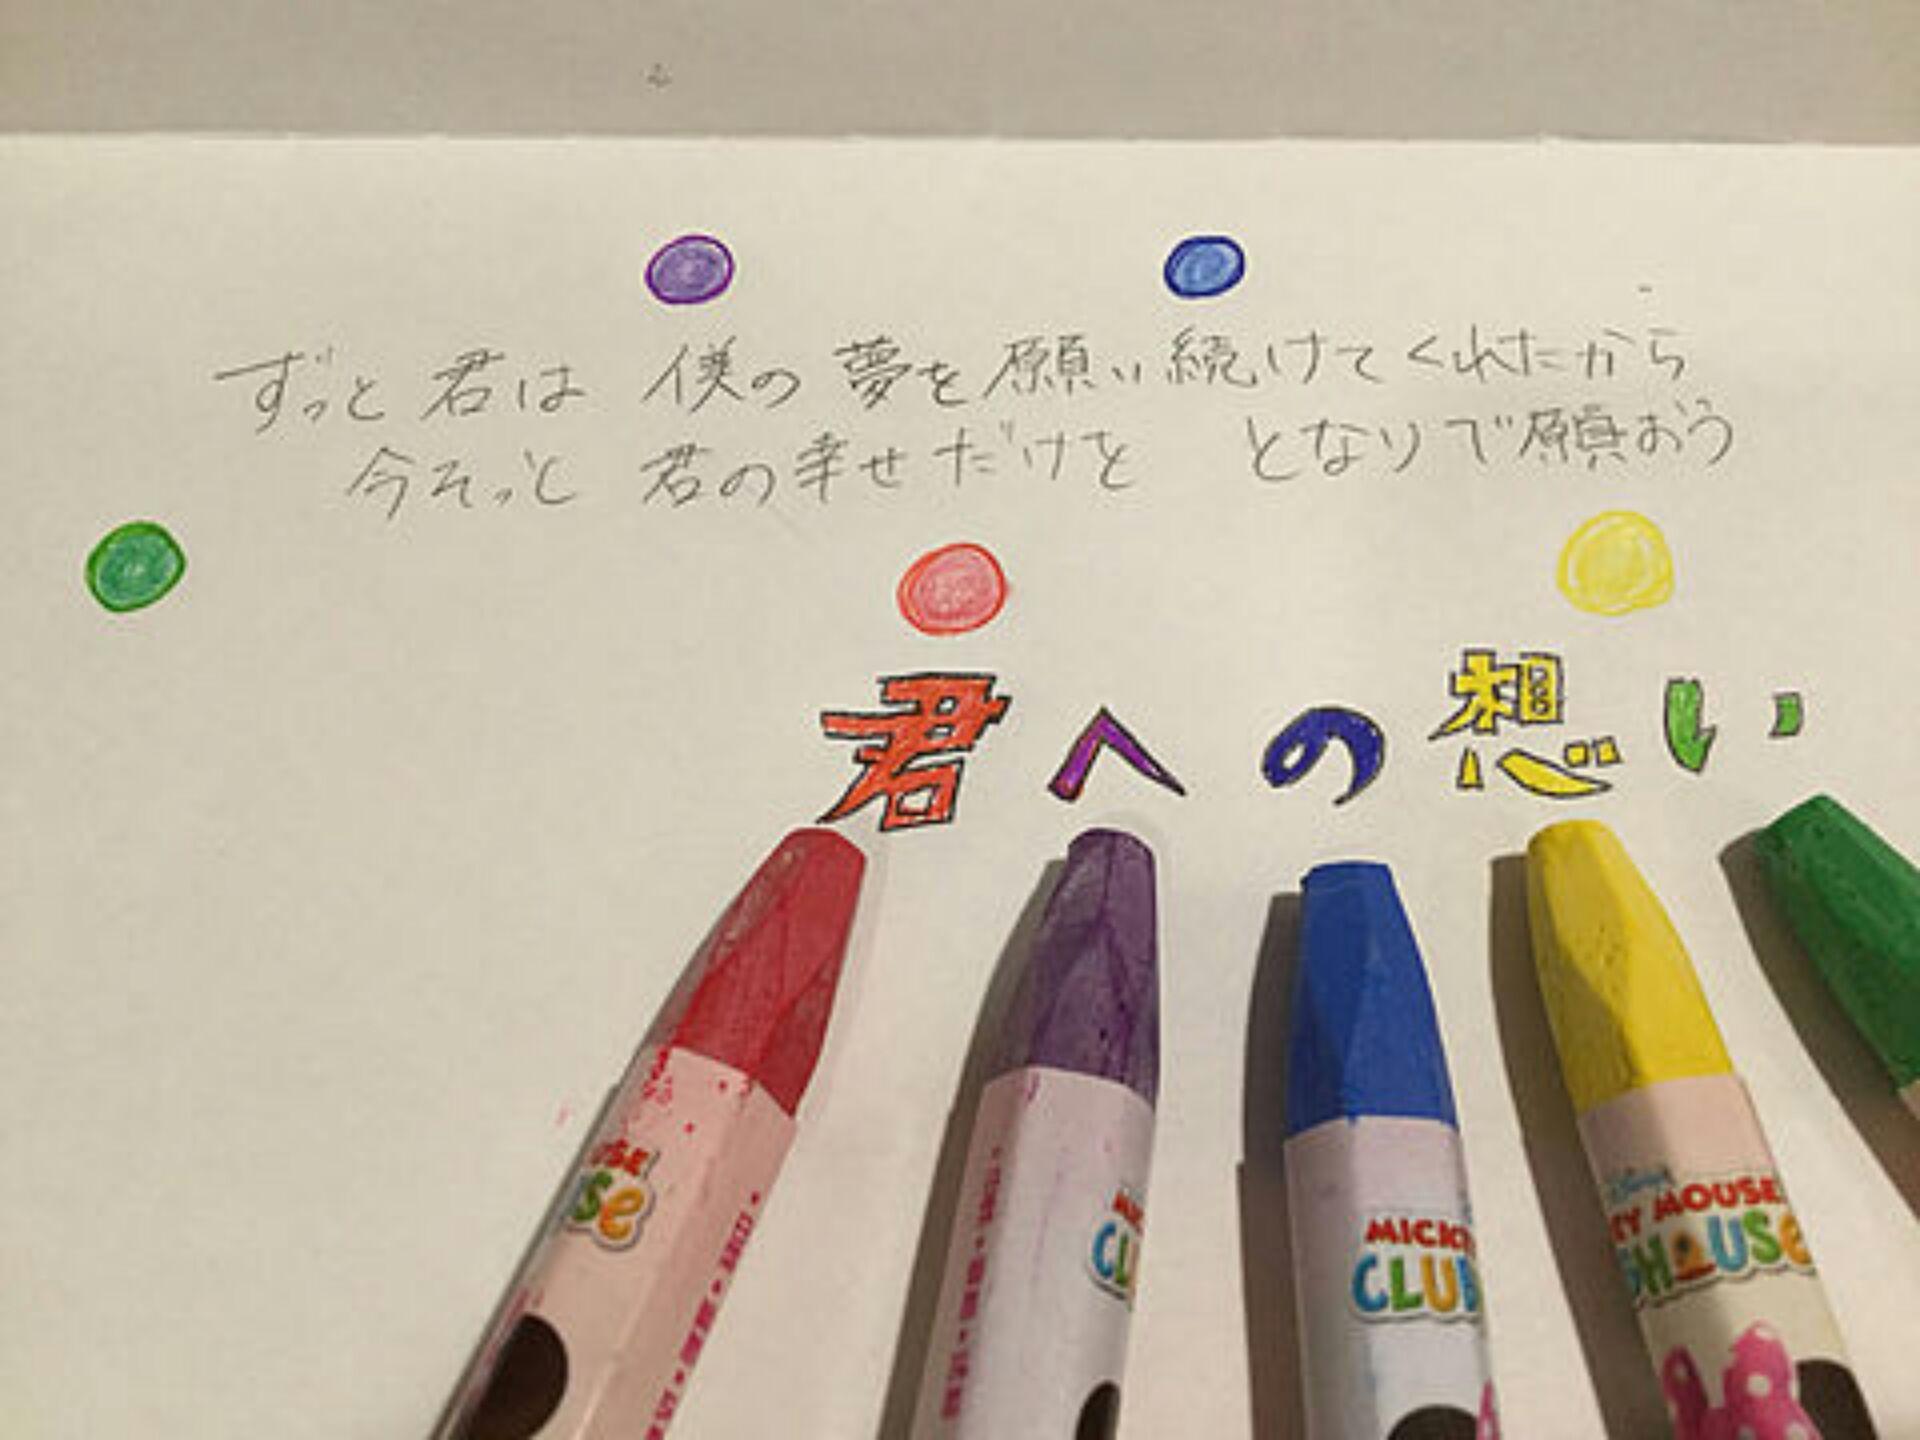 ずっと君は 僕の夢を願い続けてくれたから
今そっと 君の幸せだけを となりで願おう
君への想い
USE
USE
MICK
CLUB
CL
EY MOUSE
HOUSE